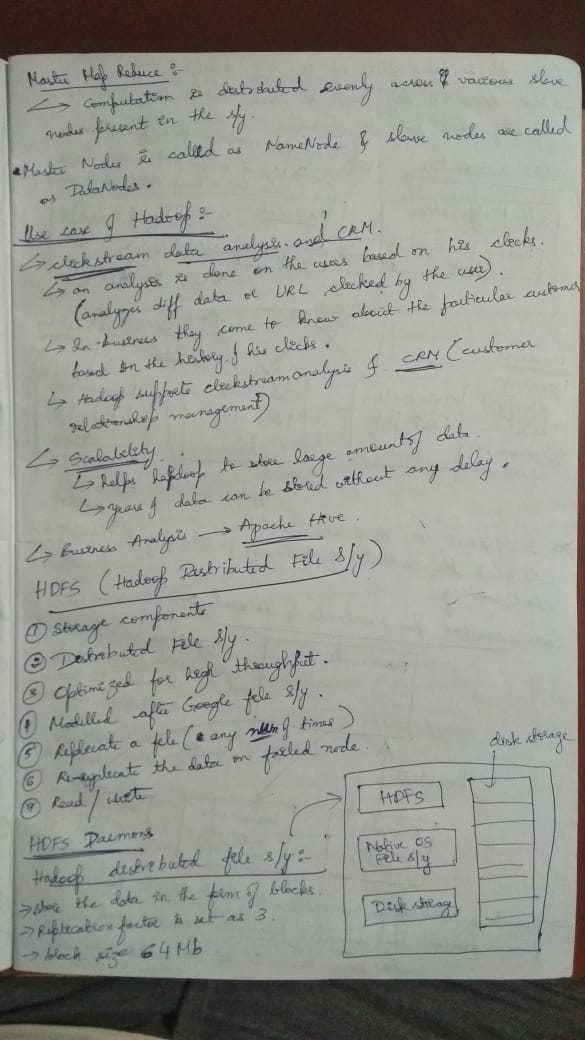 Master Map Reduce :-
↳ Computation is distributed evenly across various slave
nodes present in the s/y.
• Master Nodes is called as NameNode & slave nodes are called
as DataNodes.
Use case of Hadoop :-
↳ clickstream data analysis and CRM.
↳ an analysis is done on the users based on his clicks.
(analyzes diff data or URL clicked by the user).
↳ In business they come to know about the particular customer
based on the history of his clicks.
↳ Hadoop supports clickstream analysis & CRM (customer
relationship management)
↳ Scalability
↳ helps hapdoop to store large amount of data.
↳ years of data can be stored without any delay.
↳ Business Analysis → Apache Hive.
HDFS (Hadoop Distributed File S/y)
① Storage components
② Distributed File S/y.
③ Optimized for high throughput.
④ Modelled after Google file s/y.
⑤ Replicate a file (any num of times)
⑥ Re-replicate the data on failed node.
⑦ Read / write
disk storage
HDFS
Native OS
File s/y
Disk storage
HDFS Daemons
Hadoop distributed file s/y :-
→ store the data in the form of blocks.
→ Replication factor is set as 3.
→ block size 64 Mb